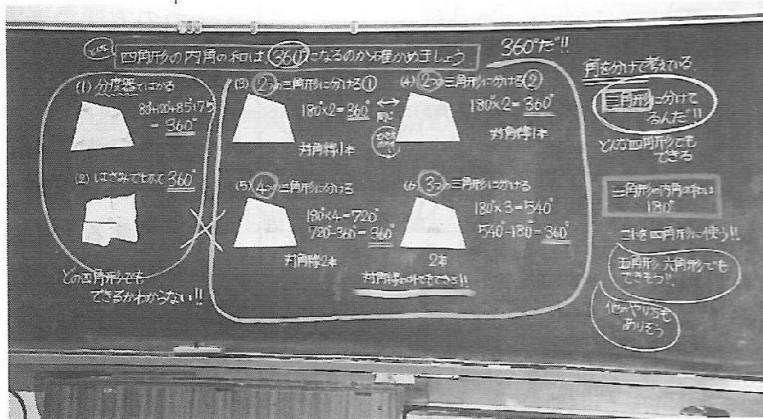 四角形の内角の和は360°になるのか確かめましょう
360°だ!!
(1) 分度器ではかる
= 360°
(2) はさみで切って 360°
どの四角形でも
できるかわからない!!
(3) 2つの三角形に分ける①
180°×2=360°
対角線1本
同じ
(4) 2つの三角形に分ける②
180°×2=360°
対角線1本
(5) 4つの三角形に分ける
180°×4=720°
720°-360°=360°
対角線2本
(6) 3つの三角形に分ける
180°×3=540°
540°-180=360°
2本
角を分けて考えている
三角形に分けて
るんだ!!
どんな四角形でも
できる
三角形の内角の和は
180°
これを四角形に使う!!
五角形 六角形でも
できそう!!
他のやり方も
ありそう